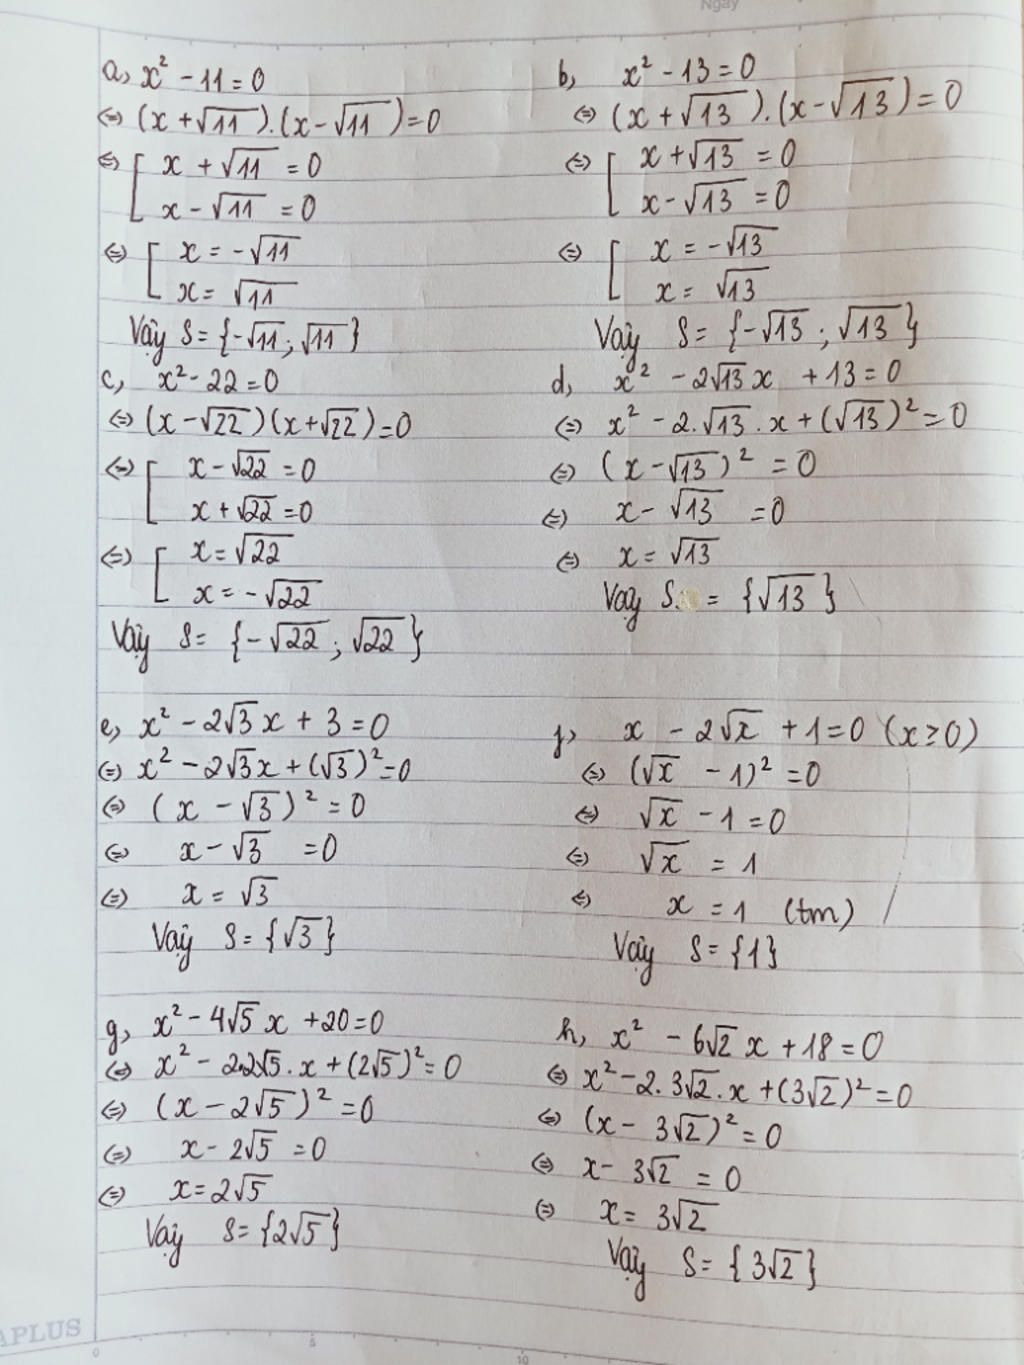 Ngày
a, x² - 11 = 0
⇔ (x + √11).(x - √11) = 0
⇔ [ x + √11 = 0
x - √11 = 0
⇔ [ x = -√11
x = √11
Vậy S = {-√11; √11}
b, x² - 13 = 0
⇔ (x + √13).(x - √13) = 0
⇔ [ x + √13 = 0
x - √13 = 0
⇔ [ x = -√13
x = √13
Vậy S = {-√13; √13}
c, x² - 22 = 0
⇔ (x - √22)(x + √22) = 0
⇔ [ x - √22 = 0
x + √22 = 0
⇔ [ x = √22
x = -√22
Vậy S = {-√22; √22}
d, x² - 2√13 x + 13 = 0
⇔ x² - 2.√13.x + (√13)² = 0
⇔ (x - √13)² = 0
⇔ x - √13 = 0
⇔ x = √13
Vậy S = {√13}
e, x² - 2√3 x + 3 = 0
⇔ x² - 2√3x + (√3)² = 0
⇔ (x - √3)² = 0
⇔ x - √3 = 0
⇔ x = √3
Vậy S = {√3}
f, x - 2√x + 1 = 0 (x ≥ 0)
⇔ (√x - 1)² = 0
⇔ √x - 1 = 0
⇔ √x = 1
⇔ x = 1 (tm)
Vậy S = {1}
g, x² - 4√5 x + 20 = 0
⇔ x² - 2.2√5.x + (2√5)² = 0
⇔ (x - 2√5)² = 0
⇔ x - 2√5 = 0
⇔ x = 2√5
Vậy S = {2√5}
h, x² - 6√2 x + 18 = 0
⇔ x² - 2.3√2.x + (3√2)² = 0
⇔ (x - 3√2)² = 0
⇔ x - 3√2 = 0
⇔ x = 3√2
Vậy S = {3√2}
APLUS
0 5 10